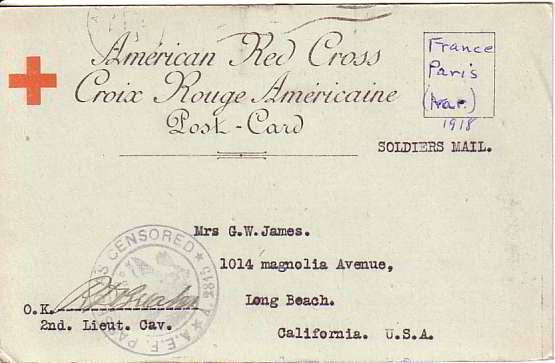 Américan Red Cross
Croix Rouge Américaine
Post-Card
France
Paris
(Nar.)
1918
SOLDIERS MAIL.
Mrs G.W.James.
1014 magnolia Avenue,
Long Beach.
California. U.S.A.
CENSORED
A.E.F.
O.K.
2nd. Lieut. Cav.